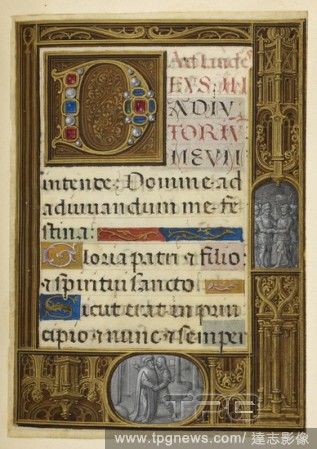 Ad Laudes
DEUS, IN
ADIU
TORIUM
MEUM
intende: Domine ad
adiuvandum me fe
stina:
Gloria patri & filio:
& spiritui sancto
Sicut erat in prin
cipio & nunc & semper
TPG
www.tpgnews.com/ 達志影像